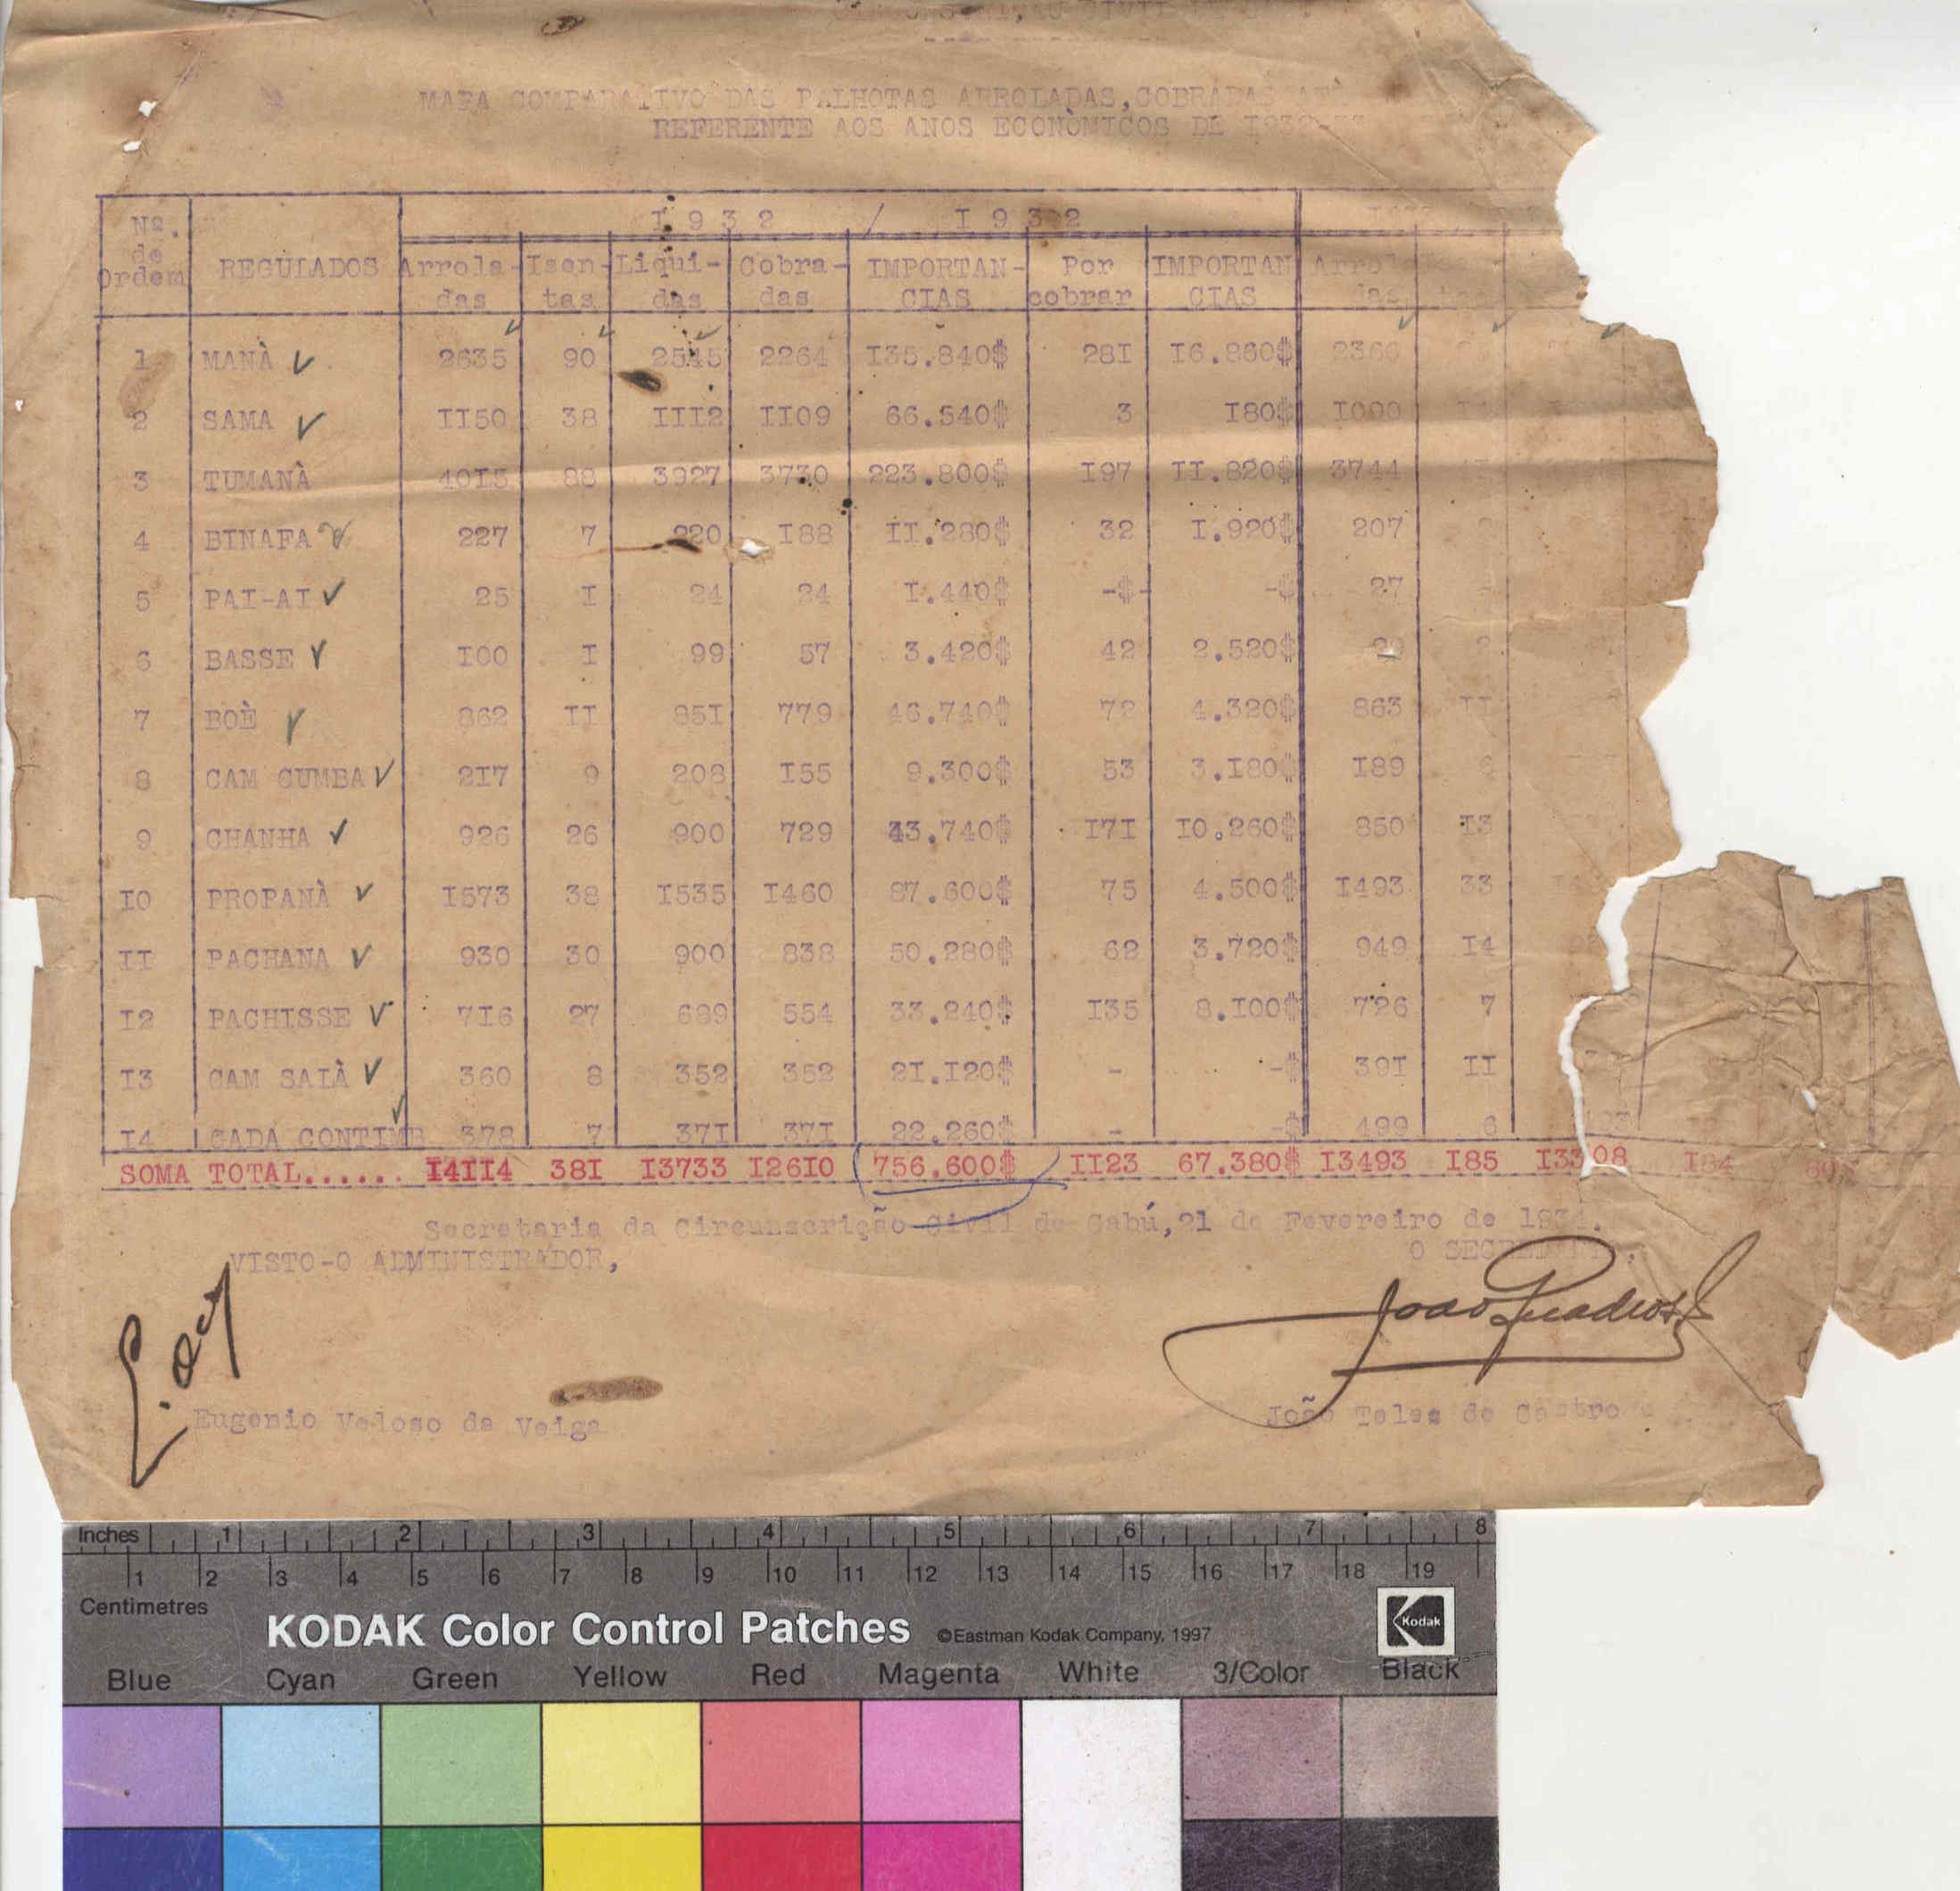 MAPA COMPARATIVO DAS PALHOTAS ARROLADAS,COBRADAS ATÈ
REFERENTE AOS ANOS ECONÒMICOS DE I932-33
I 9 3 2 / I 9 3 2
Nº. de Ordem REGULADOS Arrola-das Isen-tas Liqui-das Cobra-das IMPORTAN-CIAS Por cobrar IMPORTAN CIAS Arrol das
1 MANÀ 2635 90 2545 2264 I35.840$ 28I I6.860$ 2366
2 SAMA II50 38 III2 II09 66.540$ 3 I80$ I000
3 TUMANÀ 40I5 88 3927 3730 223.800$ I97 II.820$ 3744
4 BINAFA 227 7 220 I88 II.280$ 32 I.920$ 207
5 PAI-AI 25 I 24 24 I.440$ -$- -$ 27
6 BASSE I00 I 99 57 3.420$ 42 2.520$ 29 2
7 BOÈ 862 II 85I 779 46.740$ 72 4.320$ 863 II
8 CAM CUMBA 2I7 9 208 I55 9.300$ 53 3.I80$ I89 6
9 CHANHA 926 26 900 729 43.740$ I7I I0.260$ 850 I3
I0 PROPANÀ I573 38 I535 I460 87.600$ 75 4.500$ I493 33
II PACHANA 930 30 900 838 50.280$ 62 3.720$ 949 I4
I2 PACHISSE 7I6 27 689 554 33.240$ I35 8.I00$ 726 7
I3 CAM SALÀ 360 8 352 352 2I.I20$ - -$ 39I II
I4 CADA CONTIMB 378 7 37I 37I 22.260$ - -$ 499 6
SOMA TOTAL...... I4II4 38I I3733 I26I0 756.600$ II23 67.380$ I3493 I85 I3308 I84
Secretaria da Circunscrição Civil de Gabú,21 de Fevereiro de 1934.
VISTO-O ADMINISTRADOR,
O SECRETÁRIO,
João Quadros
Eugenio Veloso da Veiga
João Teles de Castro
Inches 1 2 3 4 5 6 7 8
1 2 3 4 5 6 7 8 9 10 11 12 13 14 15 16 17 18 19
Centimetres
KODAK Color Control Patches ©Eastman Kodak Company, 1997 Kodak
Blue Cyan Green Yellow Red Magenta White 3/Color Black